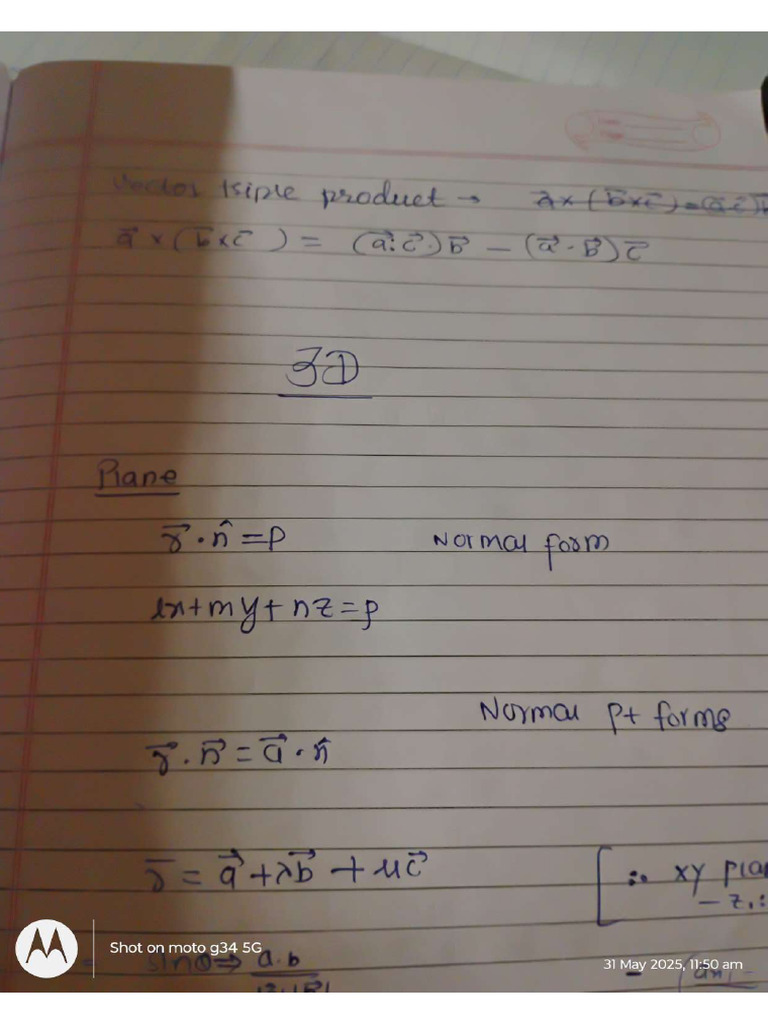 Vector triple product → a⃗×(b⃗×c⃗)=(a⃗.c⃗)b
a⃗ × (b⃗×c⃗) = (a⃗.c⃗).b⃗ − (a⃗.b⃗)c⃗
3D
Plane
r⃗.n̂=p Normal form
lx+my+nz=p
Normal pt forms
r⃗.n⃗=a⃗.n̂
r⃗ = a⃗+λb⃗+μc⃗ [∴ xy plan
− z.:
sinθ⇒ a.b
Shot on moto g34 5G
31 May 2025, 11:50 am